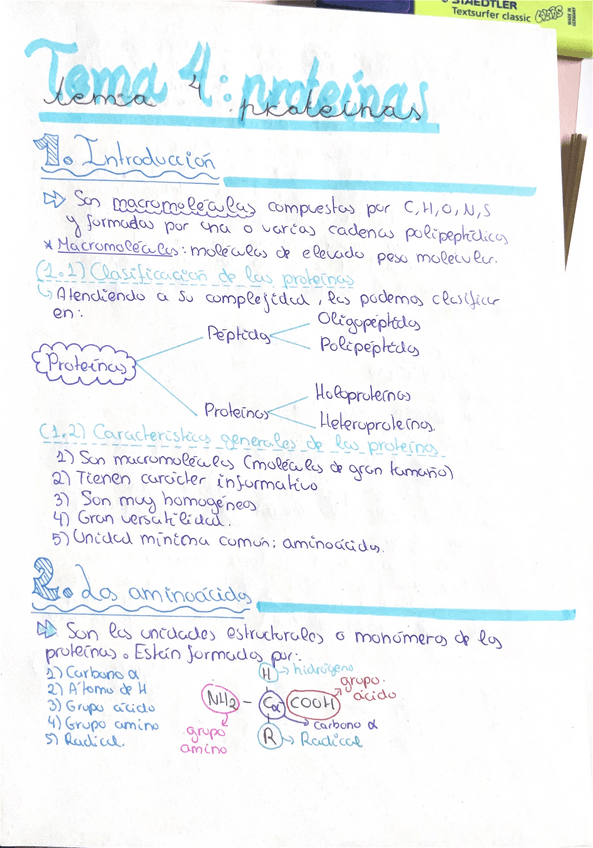 STAEDTLER
Textsurfer classic
MADE IN GERMANY
Tema 4: proteínas
tema 4 proteínas
1. Introducción
Son macromoléculas compuestas por C, H, O, N, S
y formadas por una o varias cadenas polipeptídicas
* Macromoléculas: moléculas de elevado peso molecular.
(1.1) Clasificación de las proteínas
Atendiendo a su complejidad, las podemos clasificar
en:
Péptidos
Oligopéptidos
Polipéptidos
Proteínas
Proteínas
Holoproteínas
Heteroproteínas.
(1.2) Características generales de las proteínas.
1) Son macromoléculas (moléculas de gran tamaño)
2) Tienen carácter informativo
3) Son muy homogéneos
4) Gran versatilidad.
5) Unidad mínima común: aminoácidos.
2. Los aminoácidos
Son las unidades estructurales o monómeros de las
proteínas. Están formados por:
1) Carbono α
2) Átomo de H
3) Grupo ácido
4) Grupo amino
5) Radical.
H → hidrógeno
grupo ácido
NH2 - Cα COOH
carbono α
grupo amino
R → Radical